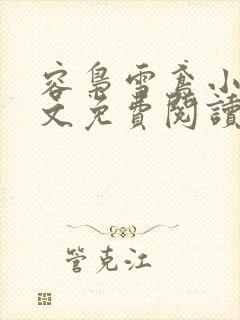 容梟雪鳶小
文免費閱讀
管克江